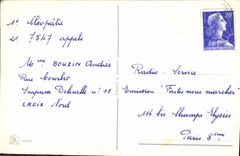 1° Cléopâtre
2° 7847 appels
Mme BOUZIN Andrée
Rue Courbet
Impasse Delsalle n° 11
CROIX Nord
Radio-Service
Emission "Faites nous marcher"
116 bis Champs Elysées
Paris 8ème